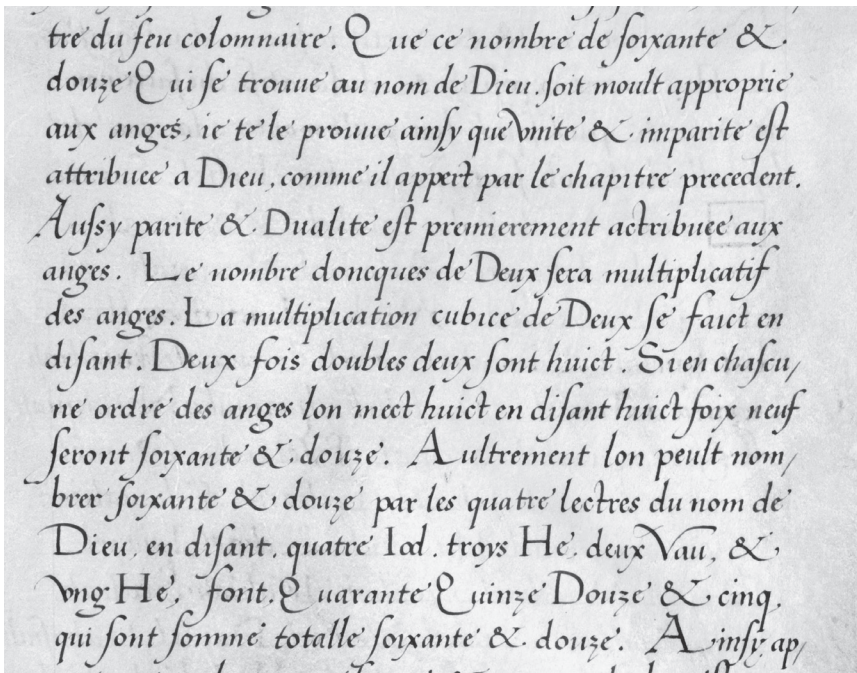 tre du feu colomnaire. Que ce nombre de soixante &
douze Qui se trouue au nom de Dieu. soit moult approprie
aux anges, ie te le prouue ainsy que vnite & imparite est
attribuee a Dieu, comme il appert par le chapitre precedent.
Aussy parite & Dualite est premierement actribuee aux
anges. Le nombre doncques de Deux sera multiplicatif
des anges. La multiplication cubice de Deux se faict en
disant. Deux fois doubles deux sont huict. Si en chascu/
ne ordre des anges lon mect huict en disant huict foix neuf
seront soixante & douze. Aultrement lon peult nom/
brer soixante & douze par les quatre lectres du nom de
Dieu. en disant. quatre Iod. troys He. deux Vau. &
vng He. font. Quarante Quinze Douze & cinq.
qui sont somme totalle soixante & douze. Ainsy ap/